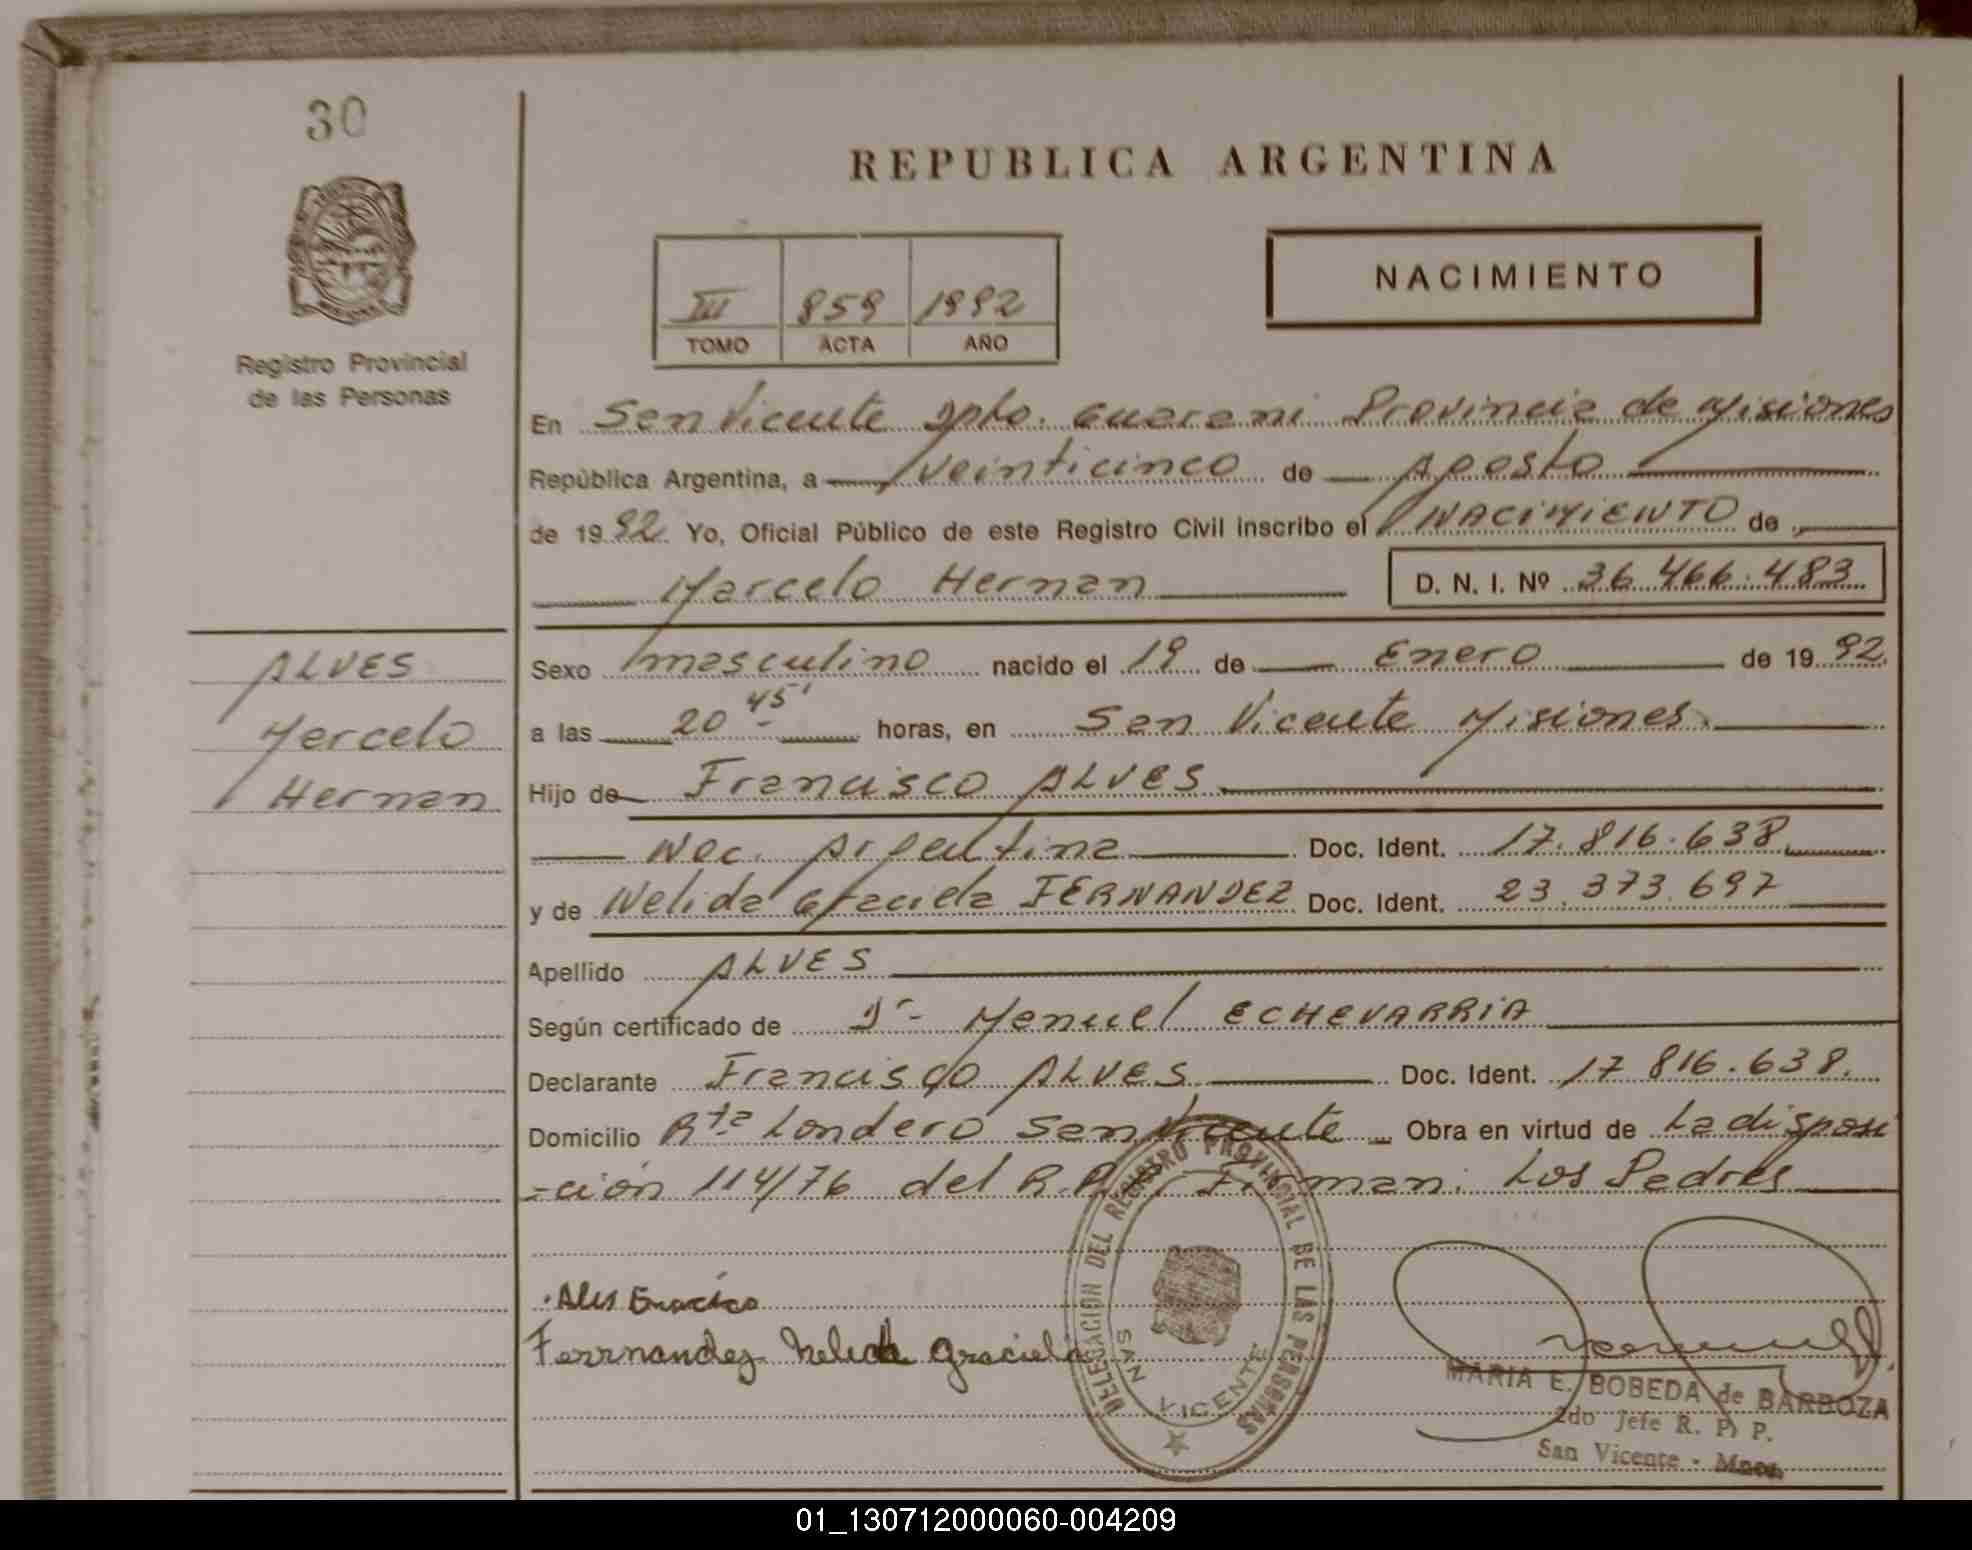 30
REPUBLICA ARGENTINA
NACIMIENTO
III 859 1992
TOMO ACTA AÑO
Registro Provincial
de las Personas
En San Vicente Dpto. Guarani Provincia de Misiones
República Argentina, a veinticinco de Agosto
de 1992 Yo, Oficial Público de este Registro Civil inscribo el NACIMIENTO de
Marcelo Hernan D. N. I. Nº 36.466.483
ALVES
Marcelo
Hernan
Sexo masculino nacido el 19 de Enero de 1992
a las 20 45' horas, en San Vicente Misiones.
Hijo de Francisco ALVES
Nac. Argentina Doc. Ident. 17.816.638
y de Nelida Graciela FERNANDEZ Doc. Ident. 23.373.697
Apellido ALVES
Según certificado de Dr. Manuel ECHEVARRIA
Declarante Francisco ALVES Doc. Ident. 17 816.638.
Domicilio Rta Londero San Vicente Obra en virtud de La disposi
-ción 114/76 del R.P.P. Firman: Los Padres
Ferrnandez Nelida Graciela
DELEGACION DEL REGISTRO PROVINCIAL DE LAS PERSONAS
SAN VICENTE
MARIA E. BOBEDA de BARBOZA
2do Jefe R. P. P.
San Vicente - Mnes.
01_130712000060-004209